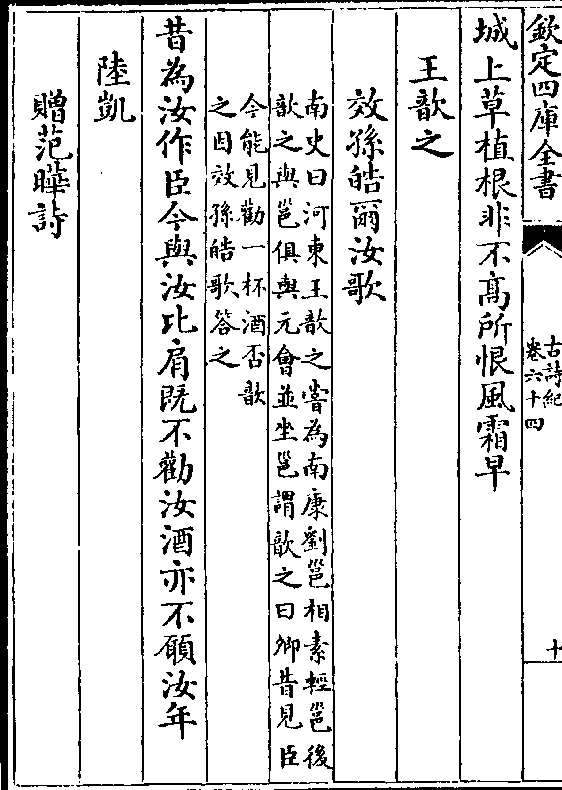 欽定四庫全書
古詩紀
卷六十四
十
城上草植根非不高所恨風霜早
王歆之
效孫皓爾汝歌
南史曰河東王歆之嘗為南康劉邕相素輕邕後
歆之與邕俱與元會並坐邕謂歆之曰卿昔見臣
今能見勸一杯酒否歆
之因效孫皓歌答之
昔為汝作臣今與汝比肩既不勸汝酒亦不願汝年
陸凱
贈范曄詩